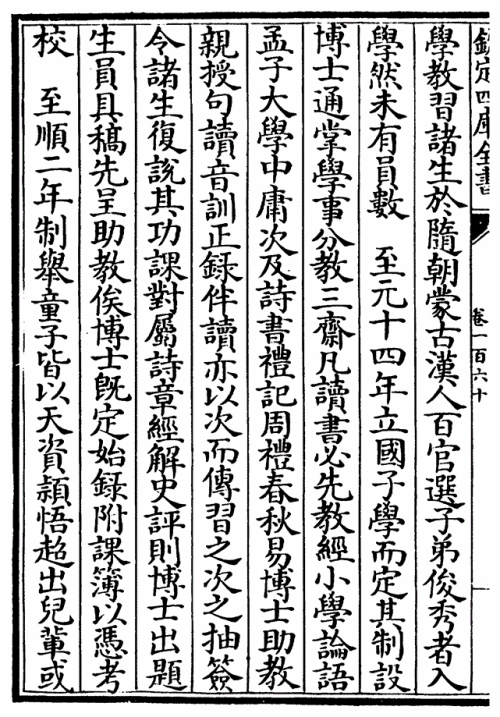 欽定四庫全書
卷一百六十
學教習諸生於隨朝蒙古漢人百官選子弟俊秀者入
學然未有員數　至元十四年立國子學而定其制設
博士通掌學事分教三齋凡讀書必先教經小學論語
孟子大學中庸次及詩書禮記周禮春秋易博士助教
親授句讀音訓正錄伴讀亦以次而傳習之次之抽簽
令諸生復說其功課對屬詩章經解史評則博士出題
生員具稿先呈助教俟博士既定始錄附課簿以憑考
校　至順二年制舉童子皆以天資穎悟超出兒輩或